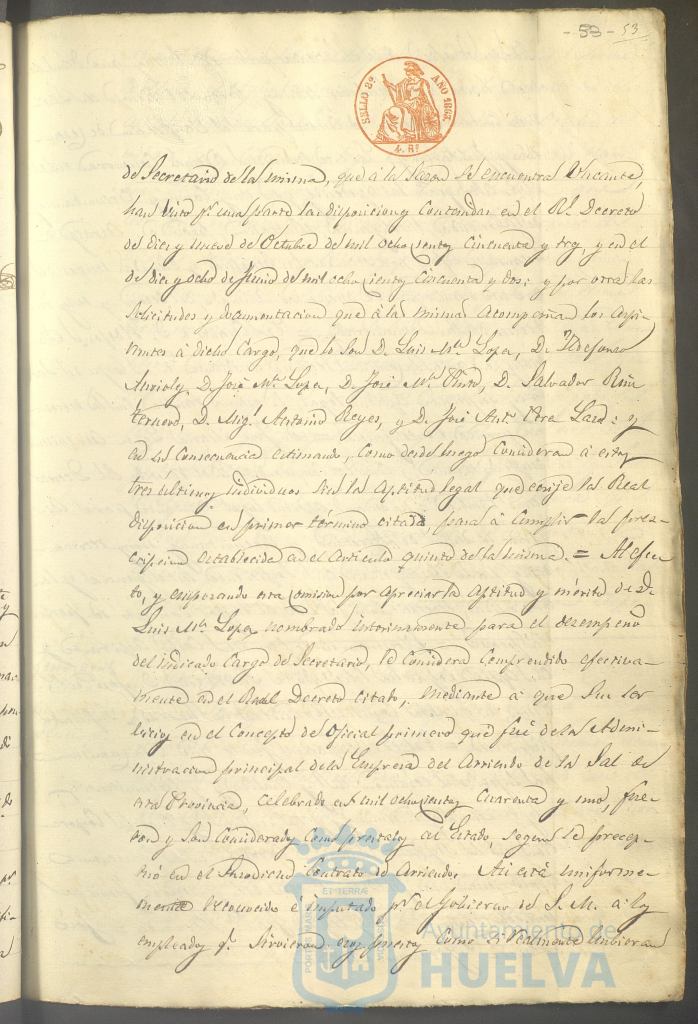 - 53 - 53
SELLO 8º AÑO 1863.
4. Rs
de Secretario de la misma, que á la sazon se encuentra Vacante,
han visto pr. una parte las disposiciones contenidas en el Rl. Decreto
de diez y nueve de Octubre de mil ochocientos cincuenta y tres, y en el
de diez y ocho de Junio de mil ochocientos cincuenta y dos; y por otra las
solicitudes y documentacion que á las mismas acompañan los aspi-
rantes á dicho Cargo, que lo son D. Luis Mª Lopez, D. Yldefonso
D. José Mª Lopez, D. José Mª Pinto, D. Salvador
D. Migl. Antonio Reyes, y D. José Antº Vera y
en su consecuencia estimando, como desde luego considera á estos
tres últimos individuos sin la aptitud legal que exije la Real
disposicion en primer término citada, para á cumplir la pres-
cripcion establecida en el Articulo quinto de la misma. = Al efec-
to, y empezando esta comision por apreciar la aptitud y mérito de D.
Luis Mª Lopez nombrado interinamente para el desempeño
del indicado Cargo de Secretario, le considera comprendido efectiva-
mente en el Real Decreto citado, mediante á que sus ser-
vicios en el concepto de Oficial primero que fué de la Admi-
nistracion principal de la Empresa del Arriendo de la Sal de
esta Provincia, celebrado en mil ochocientos cuarenta y uno, fue-
ron y son considerados como prestados al Estado, segun se precep-
tuó en el susodicho Contrato de Arriendo. Asi está uniforme-
mente reconocido é imputado pr. el Gobierno de S. M. a los
empleados qe. sirvieron esos puestos como si realmente hubieran
Ayuntamiento de
HUELVA